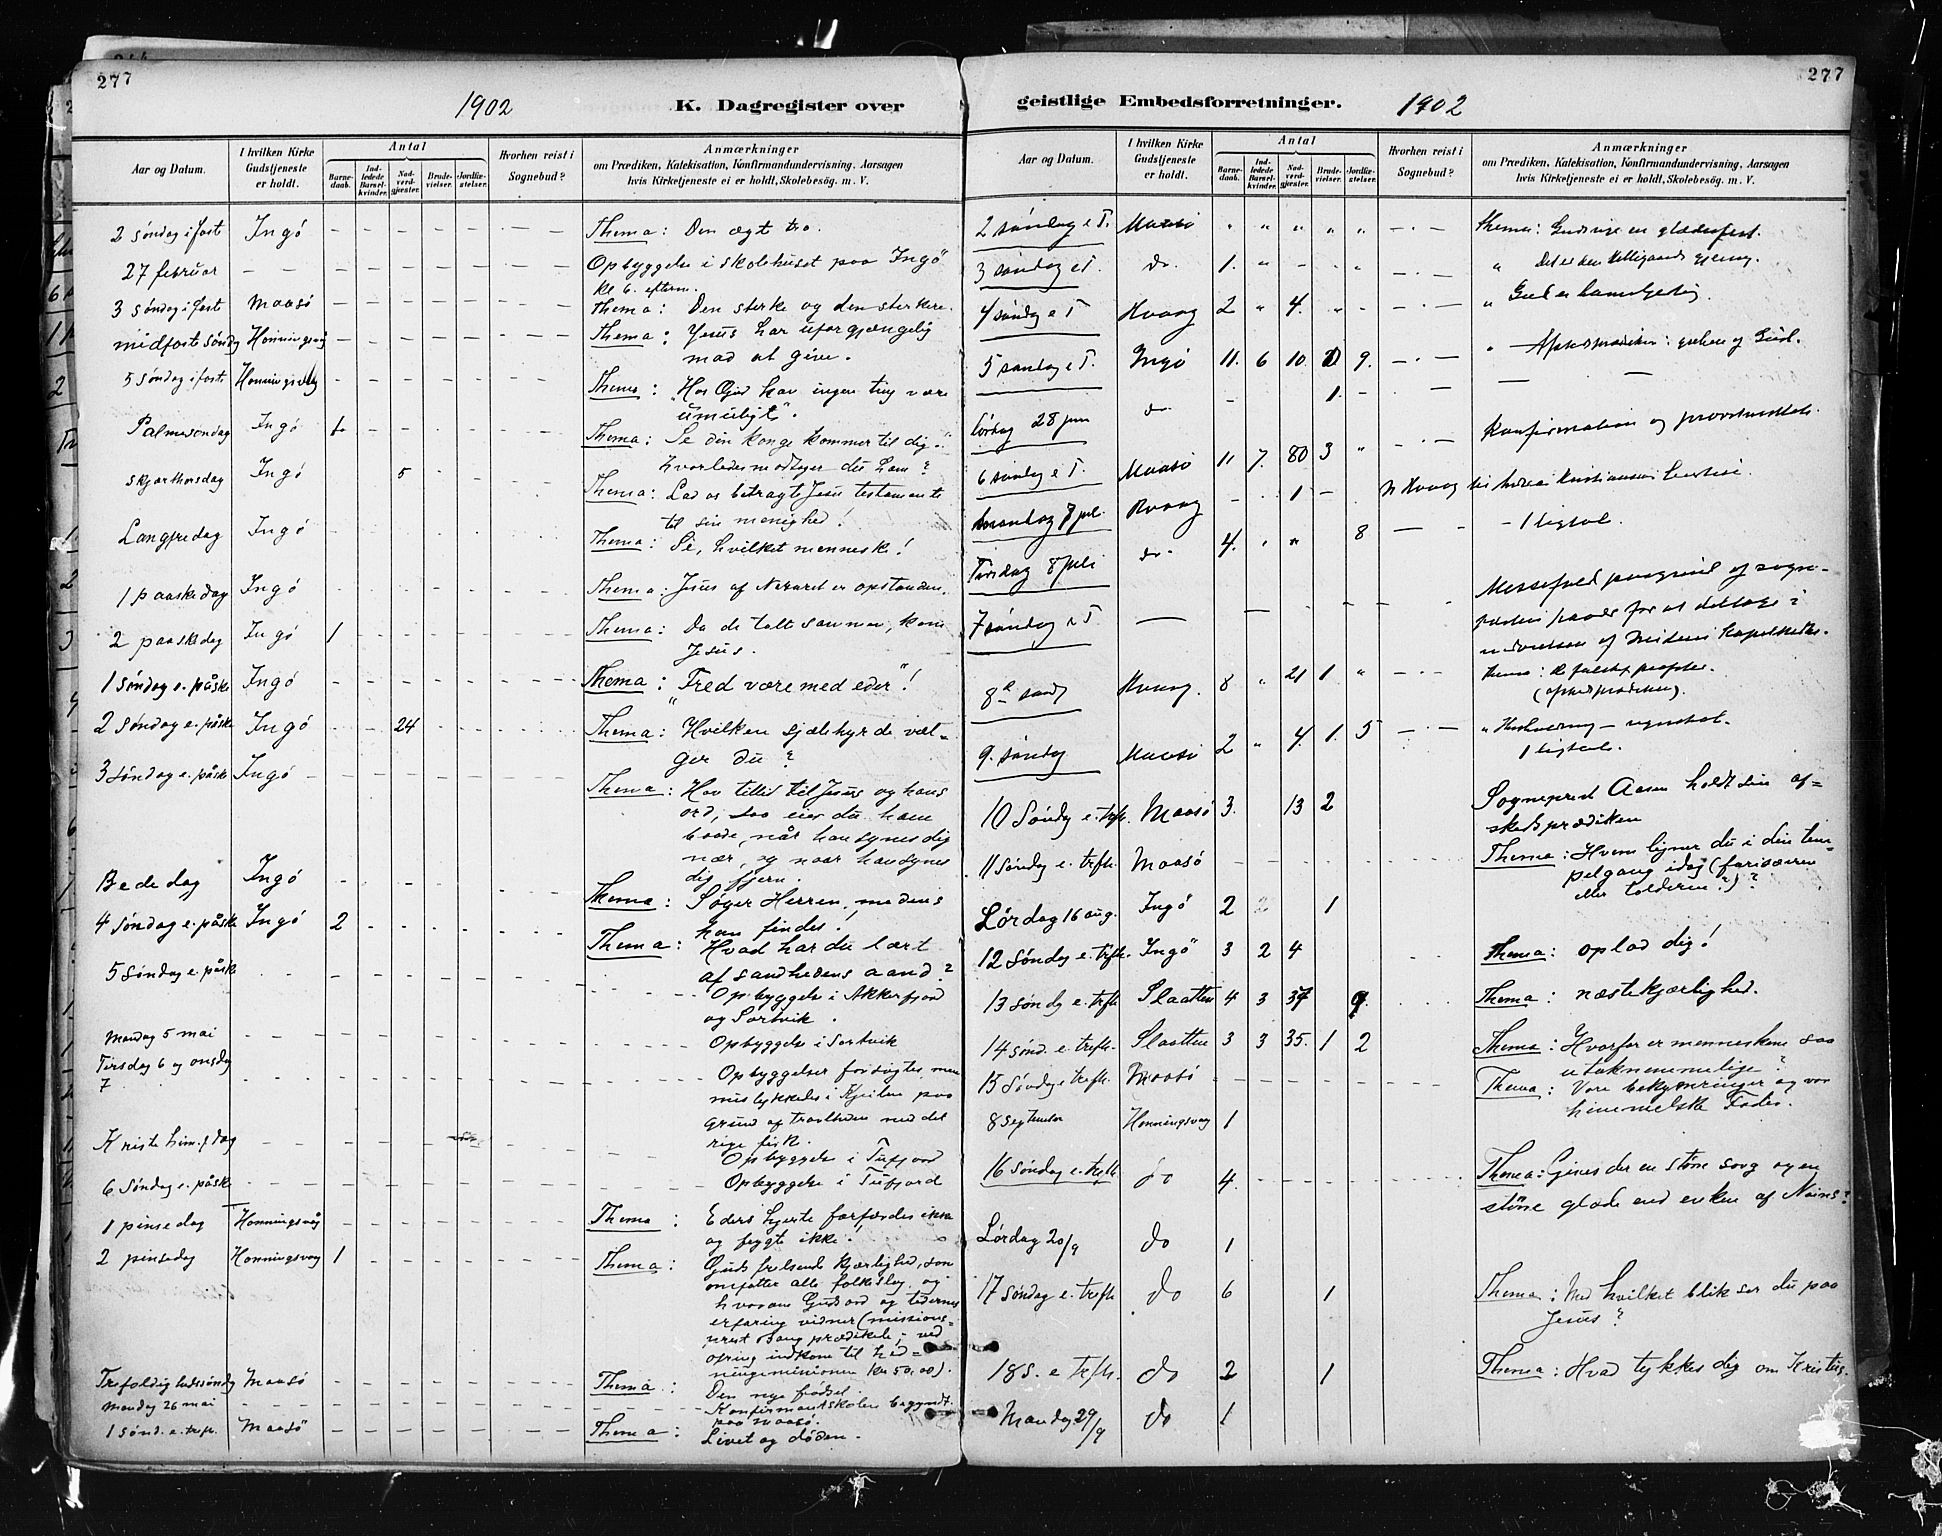 277
1902
K. Dagregister over
Aar og Datum.
I hvilken Kirke Gudstjeneste er holdt.
Antal
Barnedaab.
Indledede Barselkvinder.
Nadverdgjester.
Brudevielser.
Jordfæstelser.
Hvorhen reist i Sognebud?
Anmærkninger
om Prædiken, Katekisation, Konfirmandundervisning, Aarsagen
hvis Kirketjeneste ei er holdt, Skolebesøg. m. V.
2 søndag i fast Ingó Thema: Den ægte tro.
27 februar Opbyggelse i skolehuset paa Ingö
kl 6. eftm.
3 søndag i fast Maasó Thema: Den sterke og den sterkere.
midfaste søndg Honningsvåg Thema: Jesus har uforgjængelig
mad at give.
5 søndag i faste Honningsvåg Thema: "Hos Gud kan ingen ting være
umuligt".
Palmesøndag Ingó 1 Thema: Se din konge kommer til dig..
hvorledes modtager du ham?
skjærthorsdag Ingó 5 Thema: Lad os betragte Jesu testamente
til sin menighed!
Langfredag Ingó Thema: Se, hvilket menneske!
1 paaskedag Ingó Thema: Jesus af Nazaret er opstanden.
2 paaskedag Ingó 1 Thema: Da de talte sammen, kom
Jesus.
1 søndag e. påske Ingó Thema: "Fred være med eder"!
2 søndag e. påske Ingó 24 Thema: Hvilken sjælehyrde væl-
ger du?
3 søndag e. påske Ingó Thema: Hav tillid til Jesus og hans
ord, saa eier du ham
baade, når han synes dig
nær, og naar han synes
dig fjern.
Bededag Ingó Thema: Søger Herren, medens
han findes!
4 søndag e. påske Ingó 2 Thema: Hvad har du lært
af sandhedens aand?
5 søndag e. påsk Opbyggelse i Akkarfjord
og Sortvik.
Mandag 5 mai Opbyggelse i Sortvik
Tirsdag 6 og onsdg
7 Opbyggelser forsøgtes, men
mislykkedes i Kjeilen paa
grund af travlheden med det
rige fisk.
Kristi him.f.dag Opbyggelse i Tufjord
6 søndag e. påske Opbyggelse i Tufjord
1 pinsedag Honningsvåg Thema: Eders hjerte forfærdes ikke
og frygte ikke!
2 pinsedag Honningsvåg 1 Thema: Guds frelsende kjærlighed, som
omfatter alle folkeslag, og
hvorom Guds ord og tidernes
erfaring vidner (missions-
prest Bang prædikede; ved
ofring indkom til hed-
ningemissionen Kr 50,00).
Trefoldighedssøndg Maasó Thema: Den nye fødsel.
Mandag 26 mai Konfirmantskolen begyndt
paa Maasó.
1 sønd. e. trefh. Maasó Thema: Livet og døden.
277
geistlige Embedsforretninger.
1902
Aar og Datum.
I hvilken Kirke Gudstjeneste er holdt.
Antal
Barnedaab.
Indledede Barselkvinder.
Nadverdgjester.
Brudevielser.
Jordfæstelser.
Hvorhen reist i Sognebud?
Anmærkninger
om Prædiken, Katekisation, Konfirmandundervisning, Aarsagen
hvis Kirketjeneste ei er holdt, Skolebesøg. m. V.
2 søndag e T. Maasø Thema: Guds rige en glædesfest.
3 søndag e T. do. 1. " Det er den Helligaands gjerning.
4 søndg e T Kvaag 2 " 4. " Gud er barmhjertig.
5 søndag e T. Ingø 11. 6 10. 9.
Lördag 28 juni do 1.
6 søndag e T. Maasø 11 7. 80 3 Konfirmation og
Mandag 7 juli. Kvaag 1
Tirsdag 8 juli do. 4. 8 1 ligtale.
7 søndag e T Messefald paagrund af sogne-
presten for at deltage i
indvielsen af
8de sønd Kvaag. 8 " 21 1 Thema: De falske profeter.
9. søndag Maasø 2 " 4. 1. 5
1 ligtale.
10 Søndg e. trefh. Maasó 3. 13 2 Sogneprest Aasen holdt sin af-
skedsprædiken
11 søndg e. trefh. Maasó Thema: Hvem ligner du i din tem-
pelgang idag (farisæeren
eller tolderen?)?
Lørdag 16 aug. Ingó 2 2 1
12 Søndg e. trefh. Ingó 3 2 4 Thema: oplad dig!
13 søndg e. trefh Slaatten 4 3 37 9 Thema: næstekjærlighed.
14 sønd. e. trefh. Slaatten 3 3 35. 1 2 Thema: Hvorfor er menneskene saa
utaknemmelige?
15 Søndg e trefh. Maasó Thema: Vore bekymringer og vor
himmelske Fader.
8 september Honningsvaag 1
16 søndag e. trefh do 4. Thema: Gives der en større sorg og en
större glæde end enken af Nains?
Lørdag 20/9 do 1
17 søndag e. trefh do 6 1 Thema: Med hvilket blik ser du paa
Jesus?
18 S. e trefh. do 2 1 Thema: Hvad tykkes dig om Kristus.
Mandag 29/9 do 1